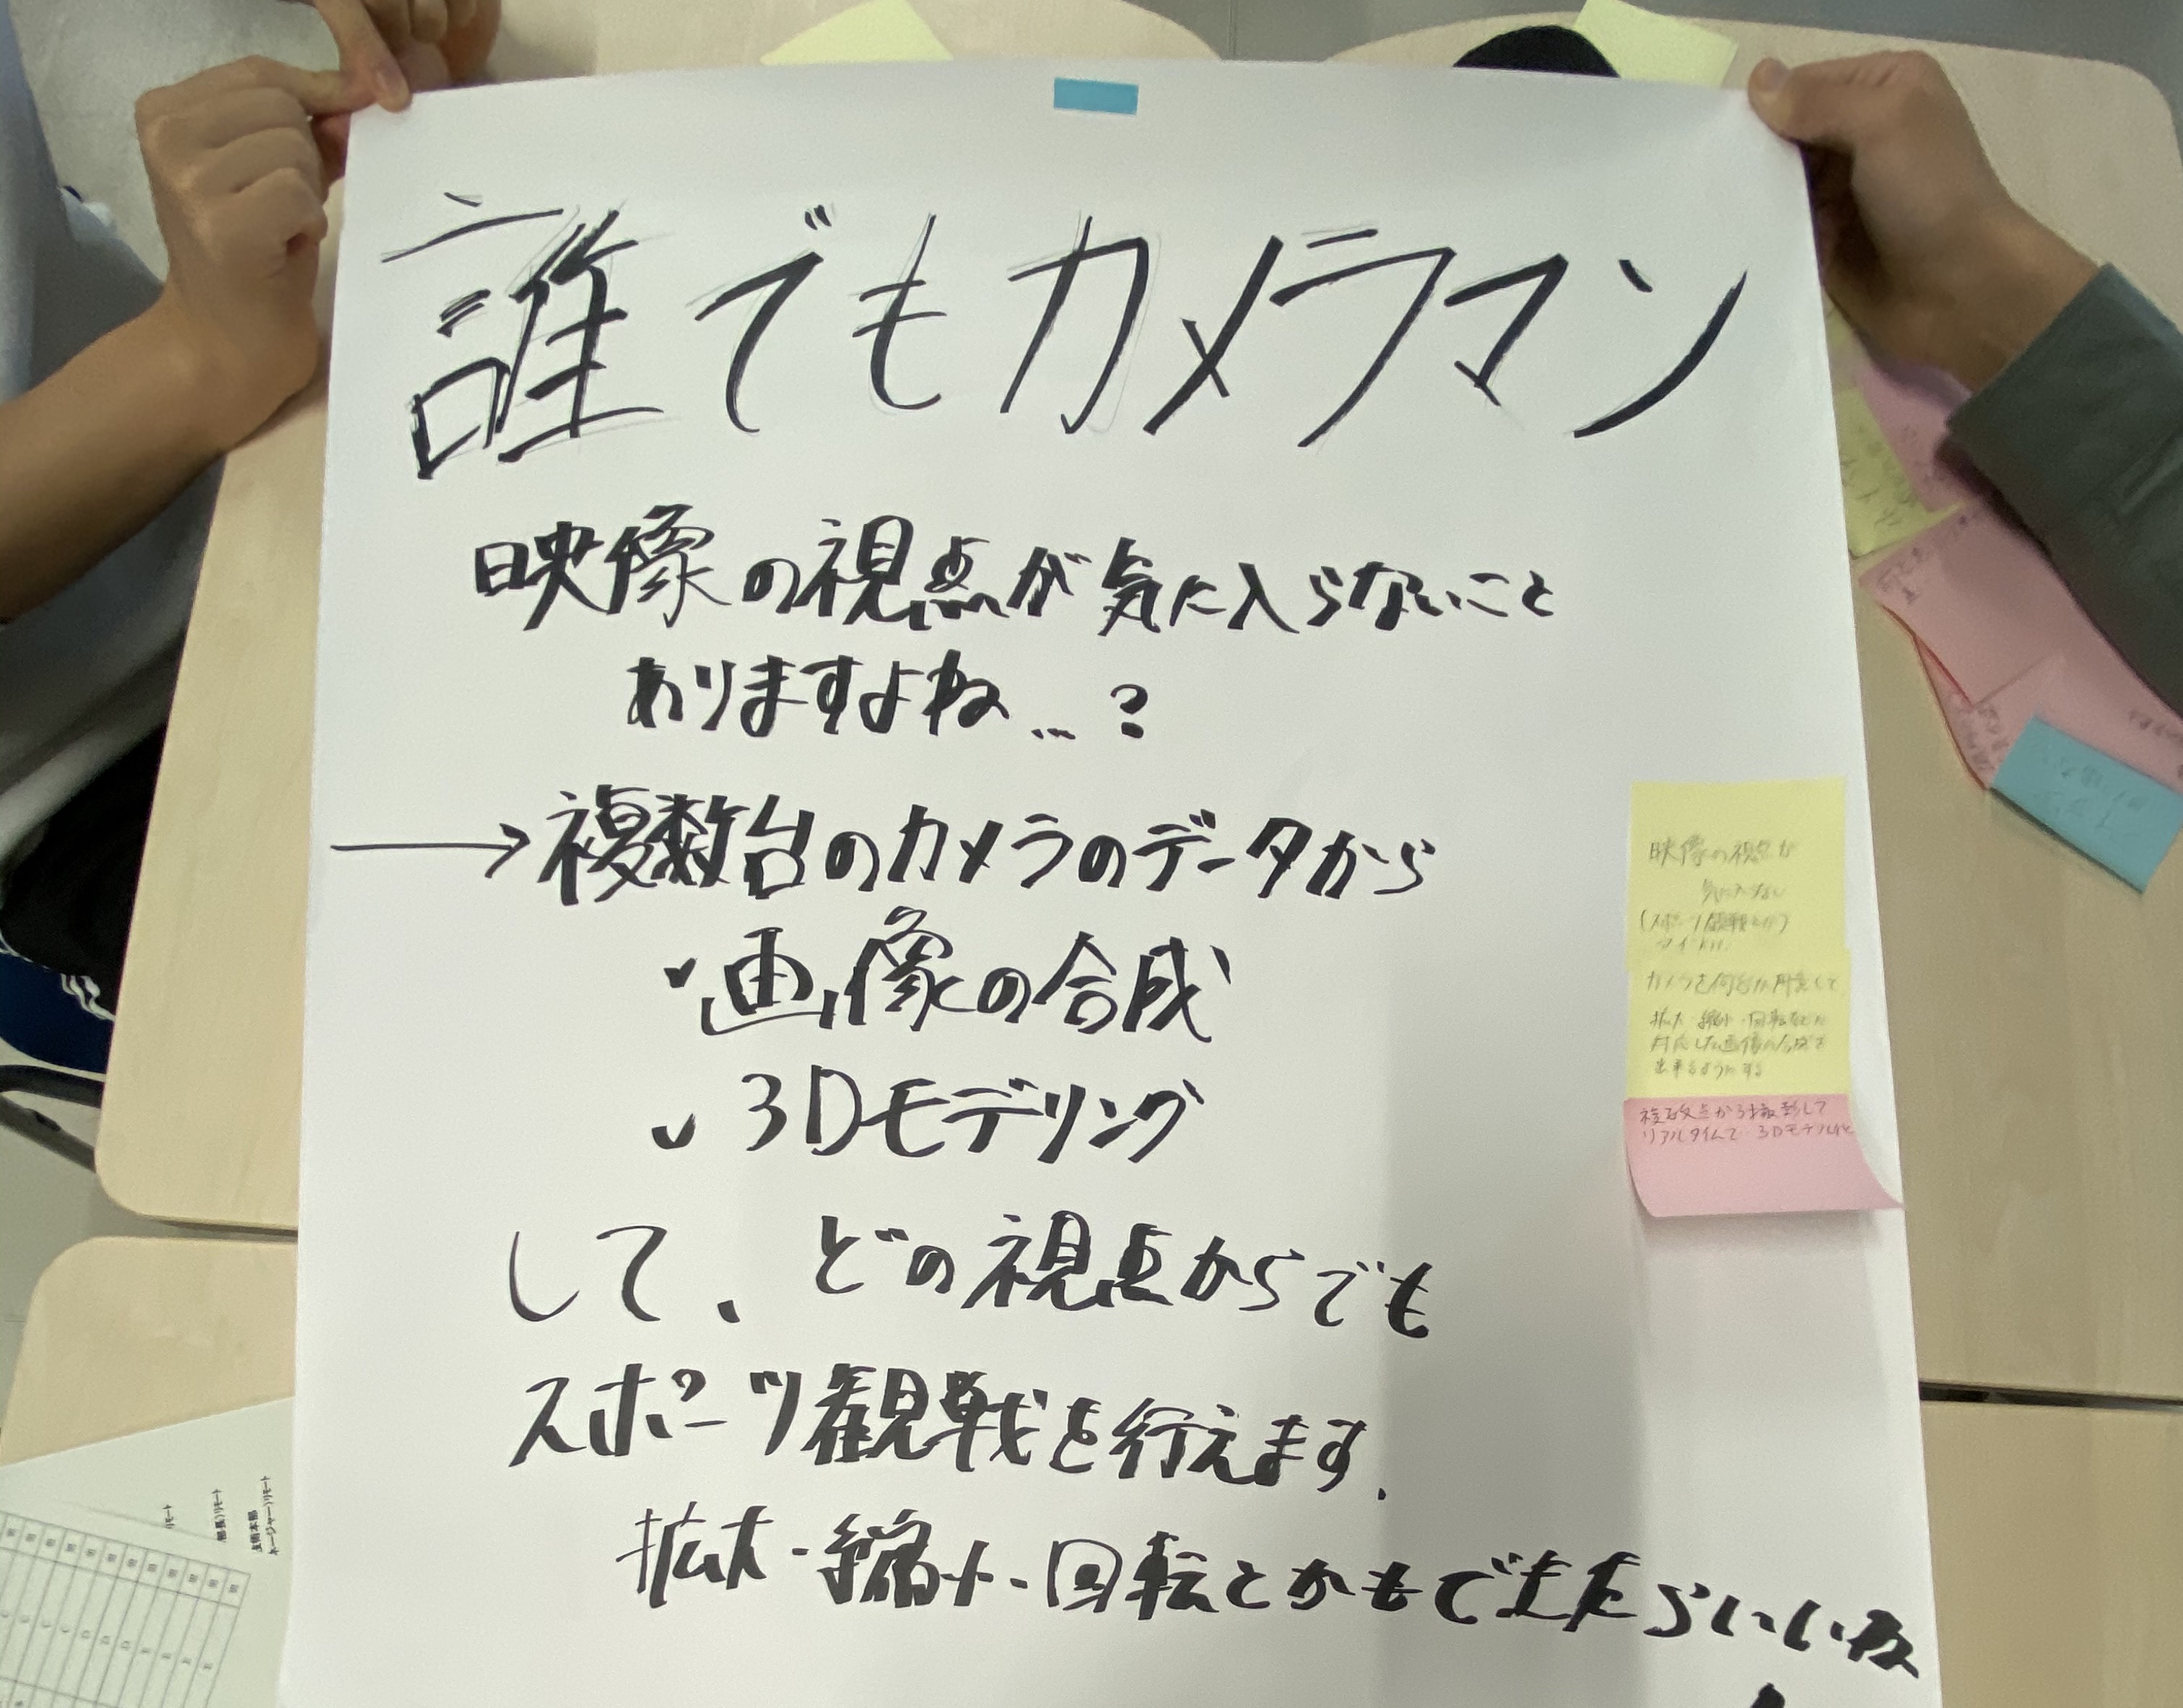 誰でもカメラマン
映像の視点が気に入らないこと
ありますよね…?
→複数台のカメラのデータから
✓画像の合成
✓3Dモデリング
して、どの視点からでも
スポーツ観戦を行えます.
拡大・縮小・回転とかもできたらいいね
映像の視点が
気に入らない
(スポーツ観戦とか)
カメラを何台か用意して
拡大・縮小・回転などに
対応した画像の合成を
出来るようにする
複数点から撮影して
リアルタイムで3Dモデル化
リモート
部長)リモート
技術本部
ネージャー)リモート